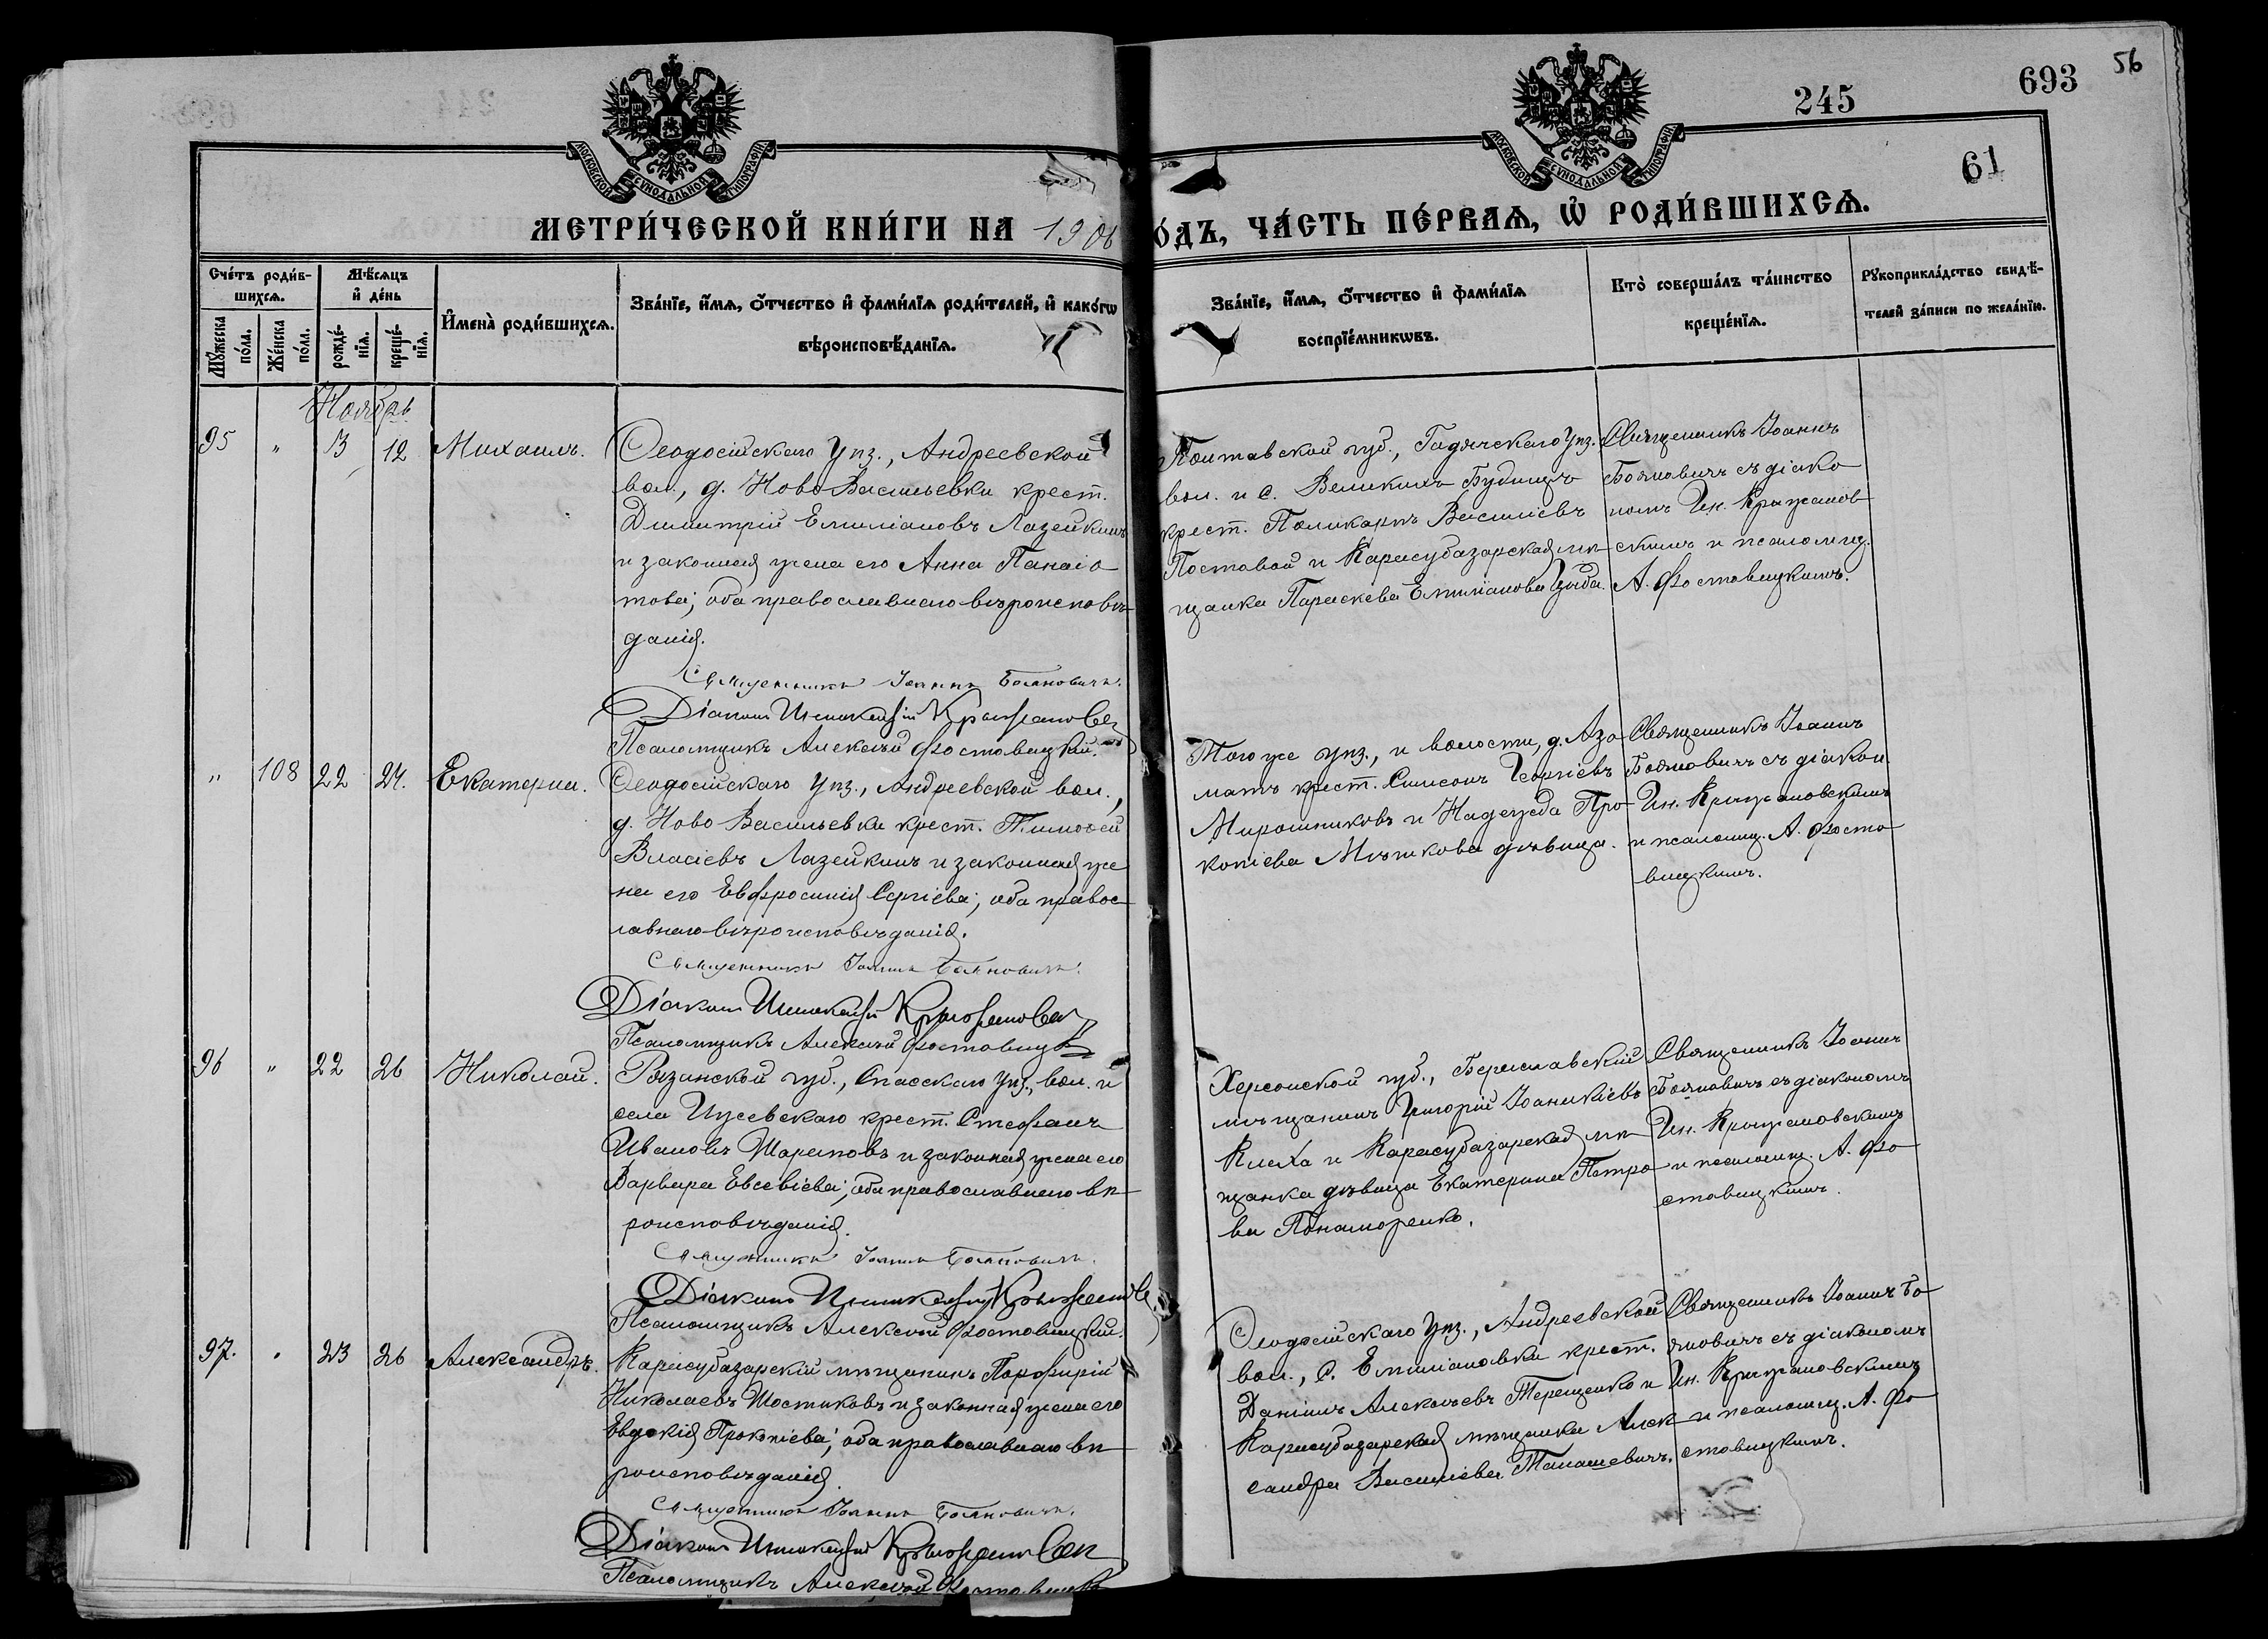 56
693
245
61
МОСКОВСКОЙ СѴНОДАЛЬНОЙ ТИПОГРАФІИ
МОСКОВСКОЙ СѴНОДАЛЬНОЙ ТИПОГРАФІИ
МЕТРИ́ЧЕСКОЙ КНИ́ГИ НА 1906
О́ДЪ, ЧА́СТЬ ПЕ́РВАѦ, Ѡ҆ РОДИ́ВШИХСѦ.
Сче́тъ роди́в-
шихсѧ.
Мꙋ́жеска по́ла.
Же́нска по́ла.
Мѣ́сѧцъ
и҆ де́нь
рожде́-
нїѧ.
креще́-
нїѧ.
И҆мена̀ роди́вшихсѧ.
Зва́нїе, и҆́мѧ, ѻ҆́тчество и҆ фами́лїѧ роди́телей, и҆ како́гѡ
вѣроисповѣ́данїѧ.
Зва́нїе, и҆́мѧ, ѻ҆́тчество и҆ фами́лїѧ
воспрїе́мникѡвъ.
Кто̀ соверша́лъ та́инство
креще́нїѧ.
Рꙋкоприкла́дство свидѣ́-
телей за́писи по жела́нїю.
Ноябрь
95 " 3 12 Михаилъ.
Ѳеодосійскаго уѣз., Андреевской
вол., д. Ново Васильевки крест.
Димитрій Емиліановъ Лазейкинъ
и законная жена его Анна Панаіо
това; оба православнаго вѣроисповѣ-
данія.
Священникъ Іоаннъ Бояновичъ.
Діаконъ Иннокентій
Псаломщикъ Алексѣй Фостовицкій.
Полтавской губ., Гадячскаго уѣз.
вол. и с. Великихъ Будищъ
крест. Поликарпъ Василіевъ
Постовой и Карасубазарская мѣ-
щанка Параскева Емиліанова Цыба.
Священникъ Іоаннъ
Бояновичъ съ діако
номъ Ин. Крыжанов
скимъ и псаломщ.
А. Фостовицкимъ.
" 108 22 24. Екатерина.
Ѳеодосійскаго уѣз., Андреевской вол.,
д. Ново Васильевки крест. Тимоѳей
Власіевъ Лазейкинъ и законная же
на его Евфросинія Сергіева; оба правос
лавнаго вѣроисповѣданія.
Священникъ Іоаннъ Бояновичъ.
Діаконъ Иннокентій
Псаломщикъ Алексѣй
Того же уѣз., и волости, д. Аза
матъ крест. Симеонъ Георгіевъ
Мирошниковъ и Надежда Про
копіева дѣвица.
Священникъ Іоаннъ
Бояновичъ съ діакон.
Ин. Крыжановскимъ
и псаломщ. А. Фосто
вицкимъ.
96 " 22 26 Николай.
Рязанской губ., Спасскаго уѣз., вол. и
села Ижевскаго крест. Стефанъ
Ивановъ Шараповъ и законная жена его
Варвара Евсевіева; оба православнаго вѣ-
роисповѣданія.
Священникъ Іоаннъ Бояновичъ.
Діаконъ Иннокентій
Псаломщикъ Алексѣй Фостовицкій.
Херсонской губ., Бериславскій
мѣщанинъ Григорій Іоаникіевъ
и Карасубазарская мѣ
щанка дѣвица Екатерина Петро
ва Понаморенко.
Священникъ Іоаннъ
Бояновичъ съ діакономъ
Ин. Крыжановскимъ
и псаломщ. А. Фо
стовицкимъ.
97. " 23 26 Александръ.
Карасубазарскій мѣщанинъ Порфирій
Николаевъ Шостиковъ и законная жена его
Евдокія Прокопіева; оба православнаго вѣ-
роисповѣданія.
Священникъ Іоаннъ Бояновичъ.
Діаконъ Иннокентій
Псаломщикъ Алексѣй
Ѳеодосійскаго уѣз., Андреевской
вол., с. Емиліановки крест.
Даніилъ Алексѣевъ Терещенко и
Карасубазарская мѣщанка Алек
сандра Василіева Танашевичъ.
Священникъ Іоаннъ Бо
яновичъ съ діакономъ
Ин. Крыжановскимъ
и псаломщ. А. Фо
стовицкимъ.